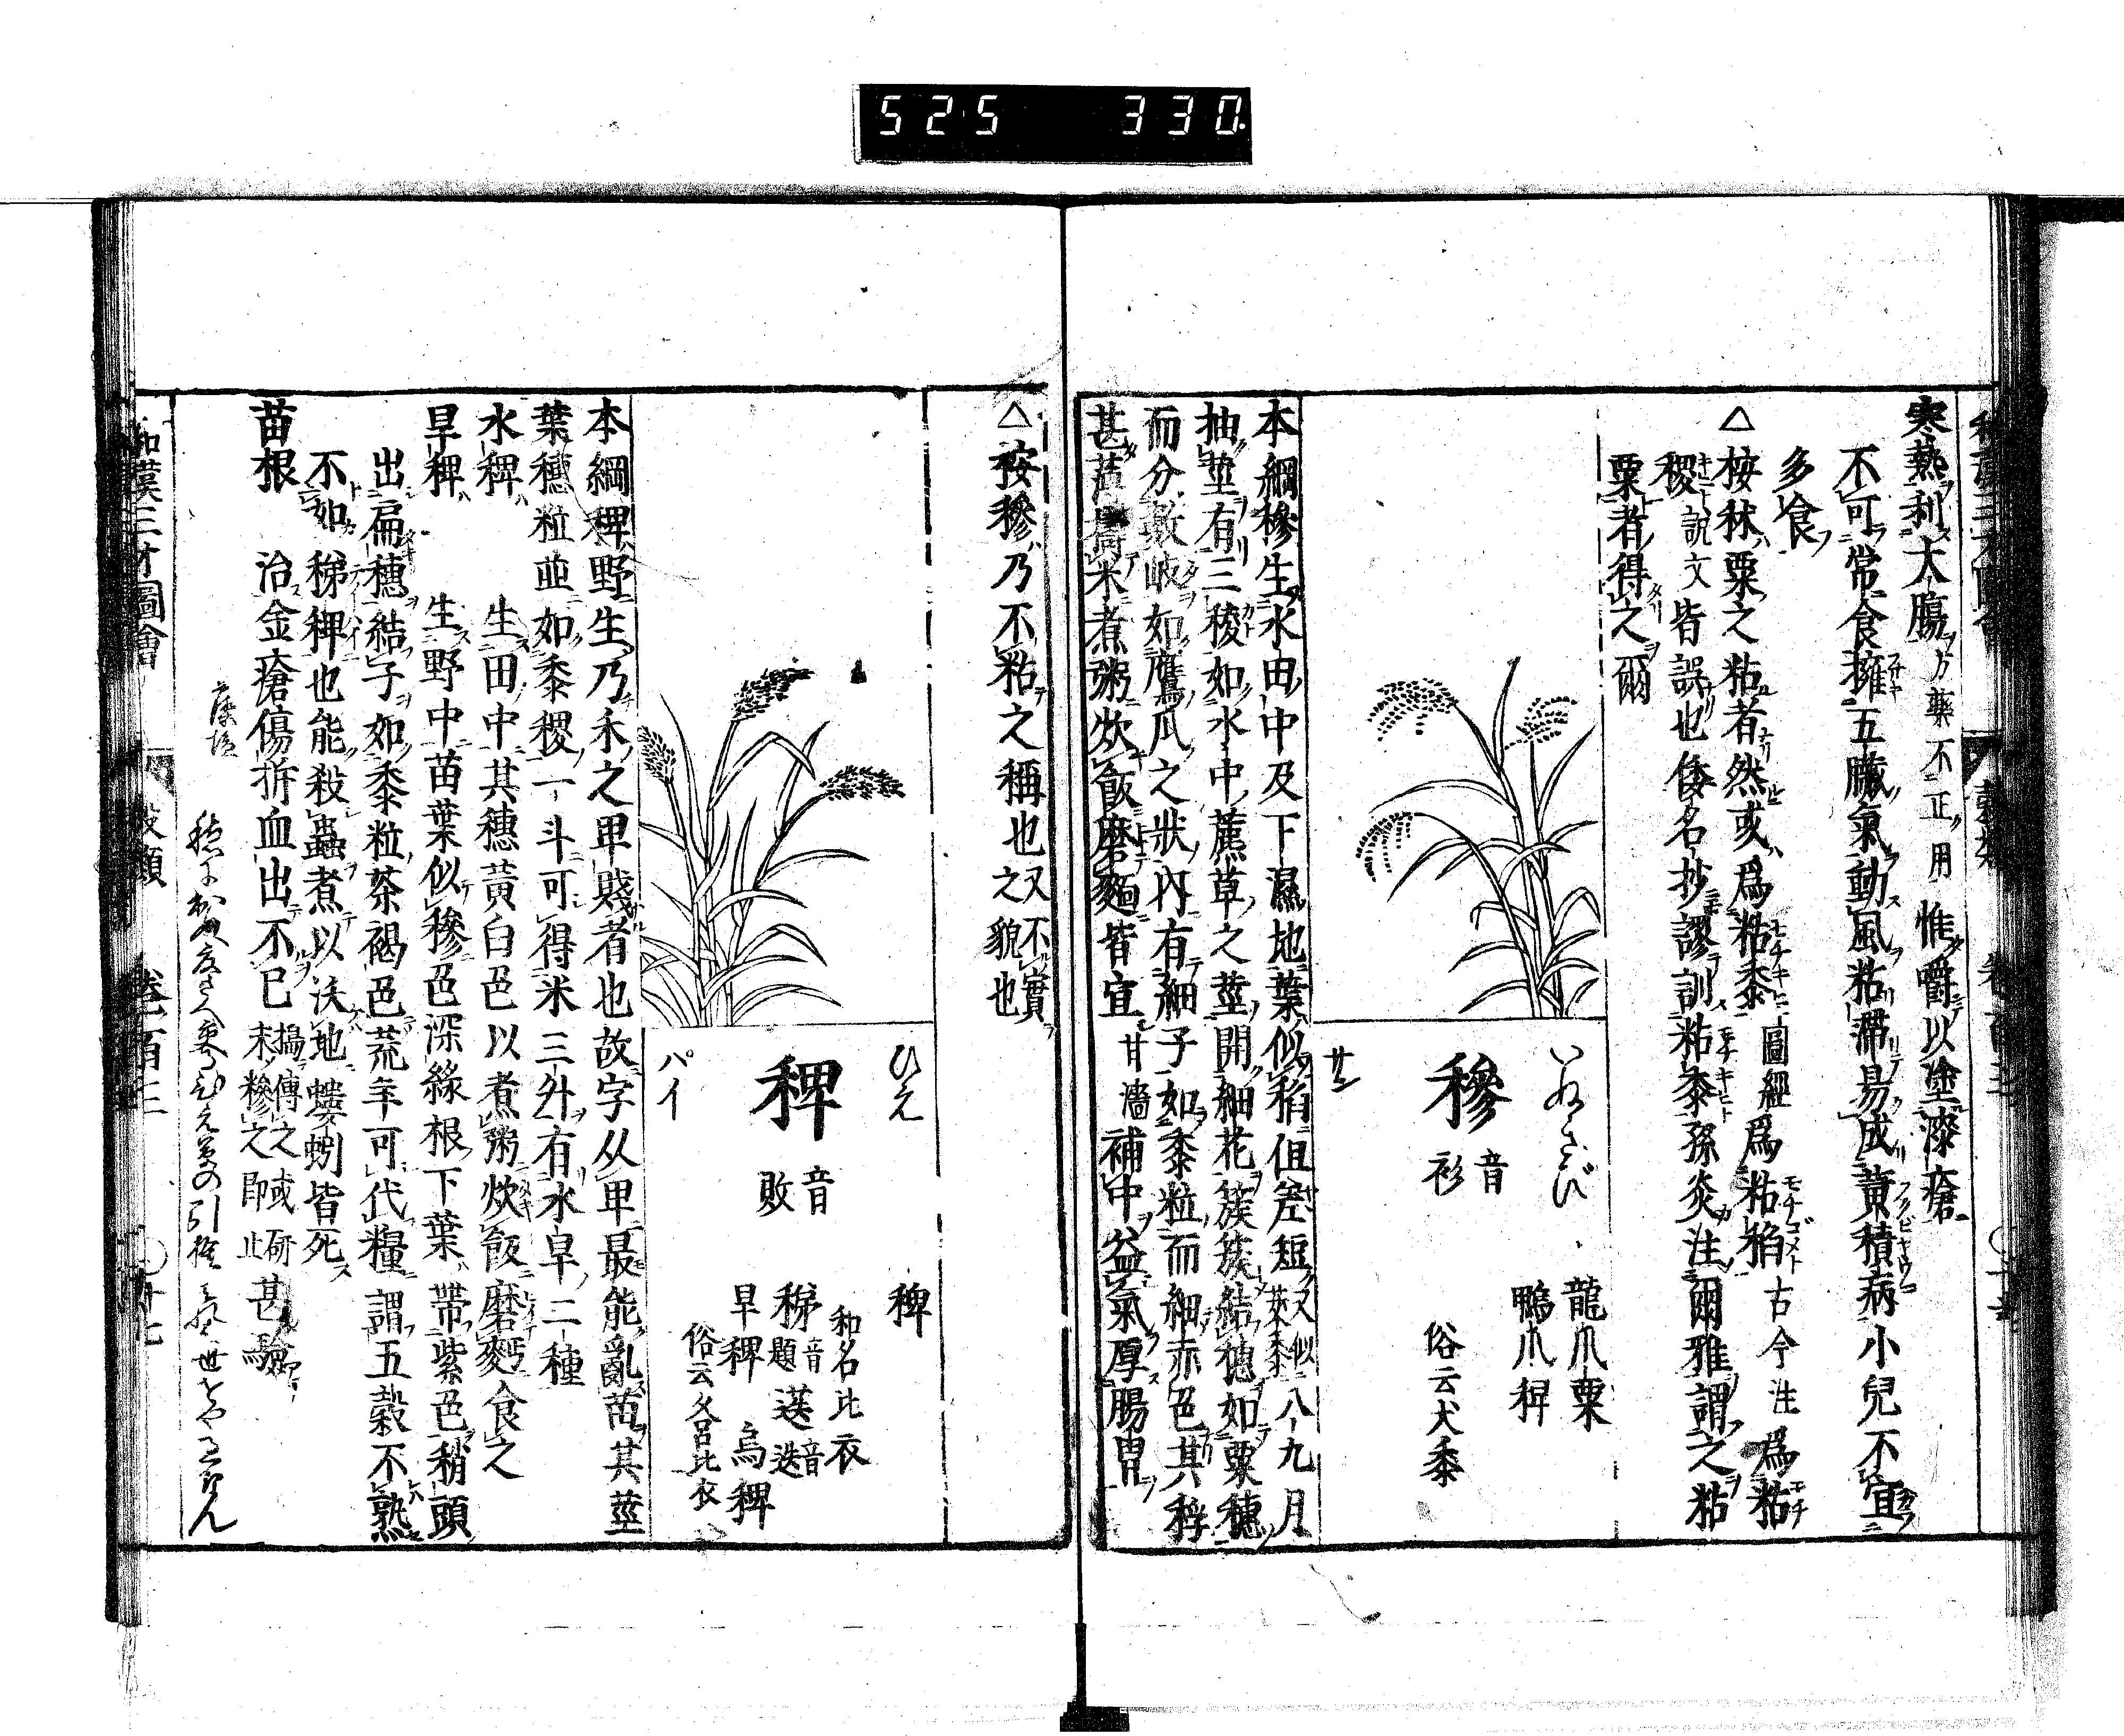 525 330
寒熱利大膓方藥不正用惟嚼以塗漆瘡
不可常食擁五臟氣動風粘滯易成黃積病小兒不宜
多食
△按秫粟之粘者然或爲粘黍圖經爲粘稻古今注爲粘
稷說文皆誤也倭名抄謬訓粘黍孫炎注爾雅謂之粘
粟者得之爾
いぬきび
穇
音衫
サン
龍爪粟
鴨爪稗
俗云犬黍
本綱穇生水田中及下濕地葉似稻但差短又似黍八九月
抽莖有三稜如水中藨草之莖開細花簇簇結穗如粟穗
而分數岐如鷹爪之狀内有細子如黍粒而細赤色其稃
甚薄擣米煮粥炊飯磨麪皆宜甘濇補中益氣厚腸胃
△按穇乃不粘之稱也又不實之貌也
ひえ
稗
音敗
パイ
稗
和名比衣
稊音題 蓈音迭
旱稗 烏稗
俗云久呂比衣
本綱稗野生乃禾之卑賤者也故字从卑最能亂苗其莖
葉穗粒並如黍稷一斗可得米三升有水旱二種
水稗 生田中其穗黃白色以煮粥炊飯磨麪食之
旱稗 生野中苗葉似穇色深綠根下葉帶紫色稍頭
出扁穗結子如黍粒茶褐色荒年可代糧謂五穀不熟
不如稊稗也能殺蟲煮以沃地螻蚓皆死
苗根 治金瘡傷折血出不已搗傅之或研末糝之即止甚驗
和漢三才圖會 穀類 卷百三 ○十七